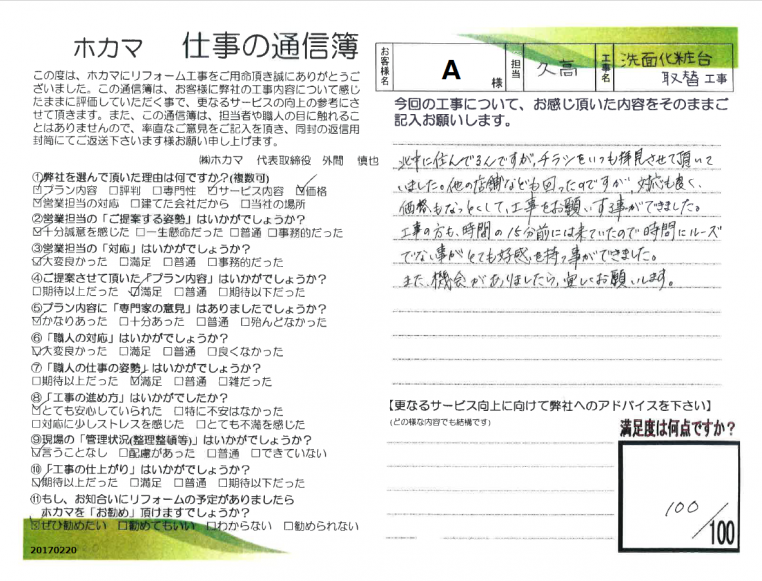 ホカマ 仕事の通信簿
この度は、ホカマにリフォーム工事をご用命頂き誠にありがとうご
ざいました。この通信簿は、お客様に弊社の工事内容について感じ
たままに評価していただく事で、更なるサービスの向上の参考にさ
せて頂きます。また、この通信簿は、担当者や職人の目に触れるこ
とはありませんので、率直なご意見をご記入を頂き、同封の返信用
封筒にてご返送下さいます様お願い申し上げます。
㈱ホカマ 代表取締役 外間 慎也
①弊社を選んで頂いた理由は何ですか?(複数可)
☑プラン内容 □評判 □専門性 ☑サービス内容 ☑価格
☑営業担当の対応 □建てた会社だから □当社の場所
②営業担当の「ご提案する姿勢」はいかがでしょうか?
☑十分誠意を感じた □一生懸命だった □普通 □事務的だった
③営業担当の「対応」はいかがでしょうか?
☑大変良かった □満足 □普通 □事務的だった
④ご提案させて頂いた「プラン内容」はいかがでしょうか?
□期待以上だった ☑満足 □普通 □期待以下だった
⑤プラン内容に「専門家の意見」はありましたでしょうか?
☑かなりあった □十分あった □普通 □殆んどなかった
⑥「職人の対応」はいかがでしょうか?
☑大変良かった □満足 □普通 □良くなかった
⑦「職人の仕事の姿勢」はいかがでしょうか?
□期待以上だった ☑満足 □普通 □雑だった
⑧「工事の進め方」はいかがでしたか?
☑とても安心していられた □特に不安はなかった
□対応に少しストレスを感じた □とても不満を感じた
⑨現場の「管理状況(整理整頓等)」はいかがでしょうか?
☑言うことなし □配慮があった □普通 □できていない
⑩「工事の仕上がり」はいかがでしょうか?
☑期待以上だった □満足 □普通 □期待以下だった
⑪もし、お知合いにリフォームの予定がありましたら
ホカマを「お勧め」頂けますでしょうか?
☑ぜひ勧めたい □勧めてもいい □わからない □勧められない
20170220
お客様名 A 様 担当 久高 工事名 洗面化粧台
取替工事
今回の工事について、お感じ頂いた内容をそのままご
記入お願いします。
北中に住んでるんですが、チラシをいつも拝見させて頂いて
いました。他の店舗なども回ったのですが、対応も良く、
価格もなっとくして、工事をお願いする事ができました。
工事の方も、時間の15分前には来ていたので時間にルーズ
でない事がとても好感を持つ事ができました。
また、機会がありましたら、宜しくお願いします。
【更なるサービス向上に向けて弊社へのアドバイスを下さい】
(どの様な内容でも結構です)
満足度は何点ですか?
100
/100